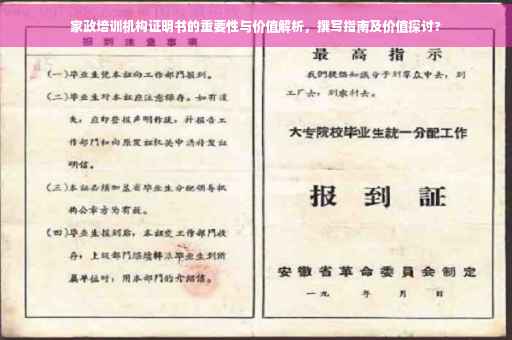 家政培训机构证明书的重要性与价值解析，撰写指南及价值探讨？
报到注意事项
(一)毕业生凭本证向工作部门报到。
(二)毕业生对本证应注意保存。如有遗
失，应即登报声明作废，并报告工
作部门和向原发证机关申请补发证
明信。
(三)本证必须加盖省毕业生分配领导机
构公章方为有效。
(四)毕业生报到后，本证交工作部门收
存；上级部门
毕业生到所
属单位时，用本部门的介绍信。
最高指示
我们提倡知识分子到群众中去，到
工厂去，到农村去。
大专院校毕业生统一分配工作
报到証
安徽省革命委員会制定
一九 年 月 日